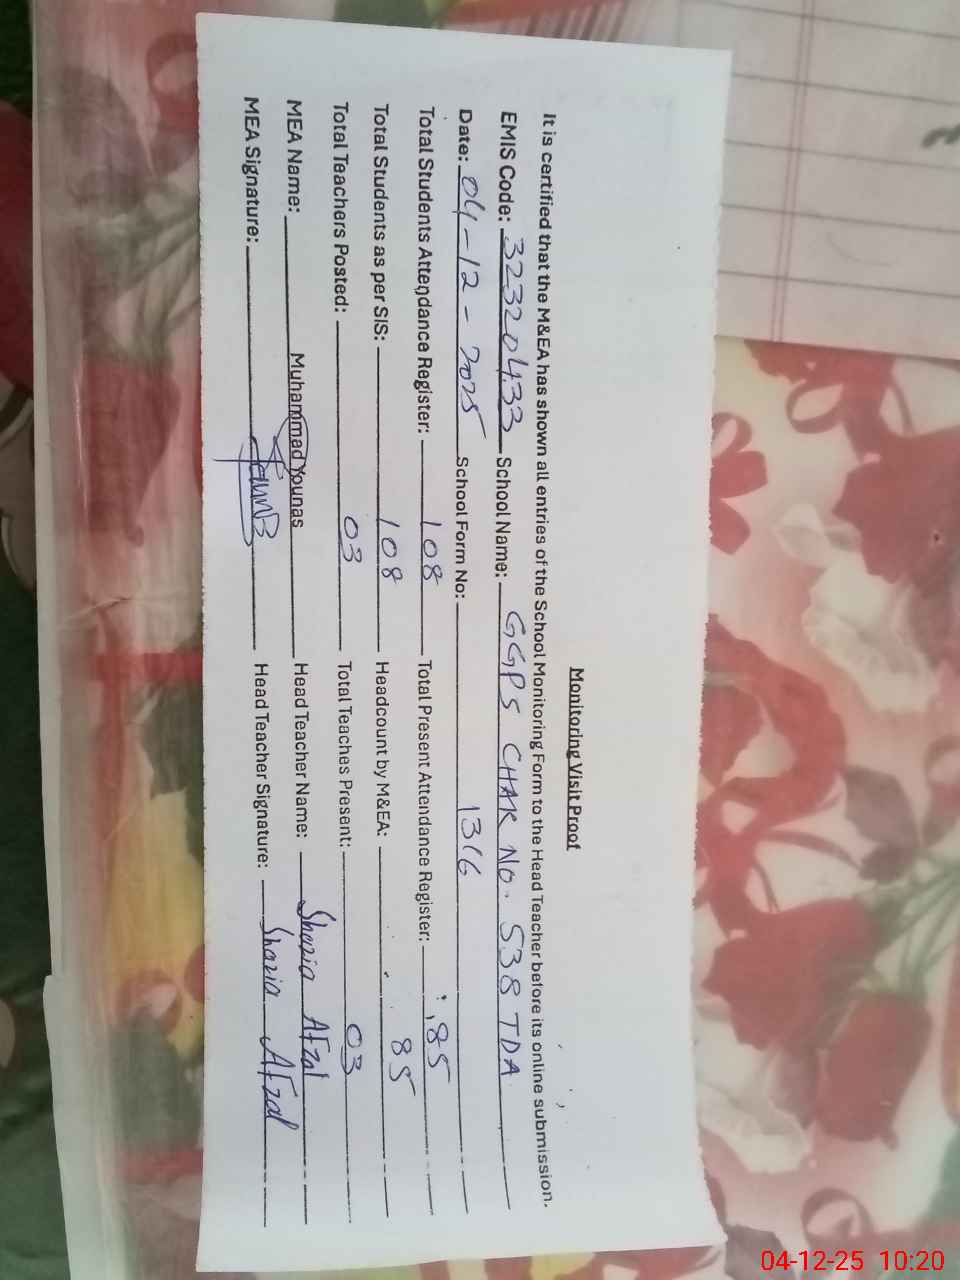 Monitoring Visit Proof
It is certified that the M&EA has shown all entries of the School Monitoring Form to the Head Teacher before its online submission.
EMIS Code: 32320433 School Name: GGPS CHAK NO. 538 TDA
Date: 04-12-2025 School Form No: 1316
Total Students Attendance Register: 108 Total Present Attendance Register: 85
Total Students as per SIS: 108 Headcount by M&EA: 85
Total Teachers Posted: 03 Total Teaches Present: 03
MEA Name: Muhammad Younas Head Teacher Name: Shazia Afzal
MEA Signature: Head Teacher Signature: Shazia Afzal
04-12-25 10:20